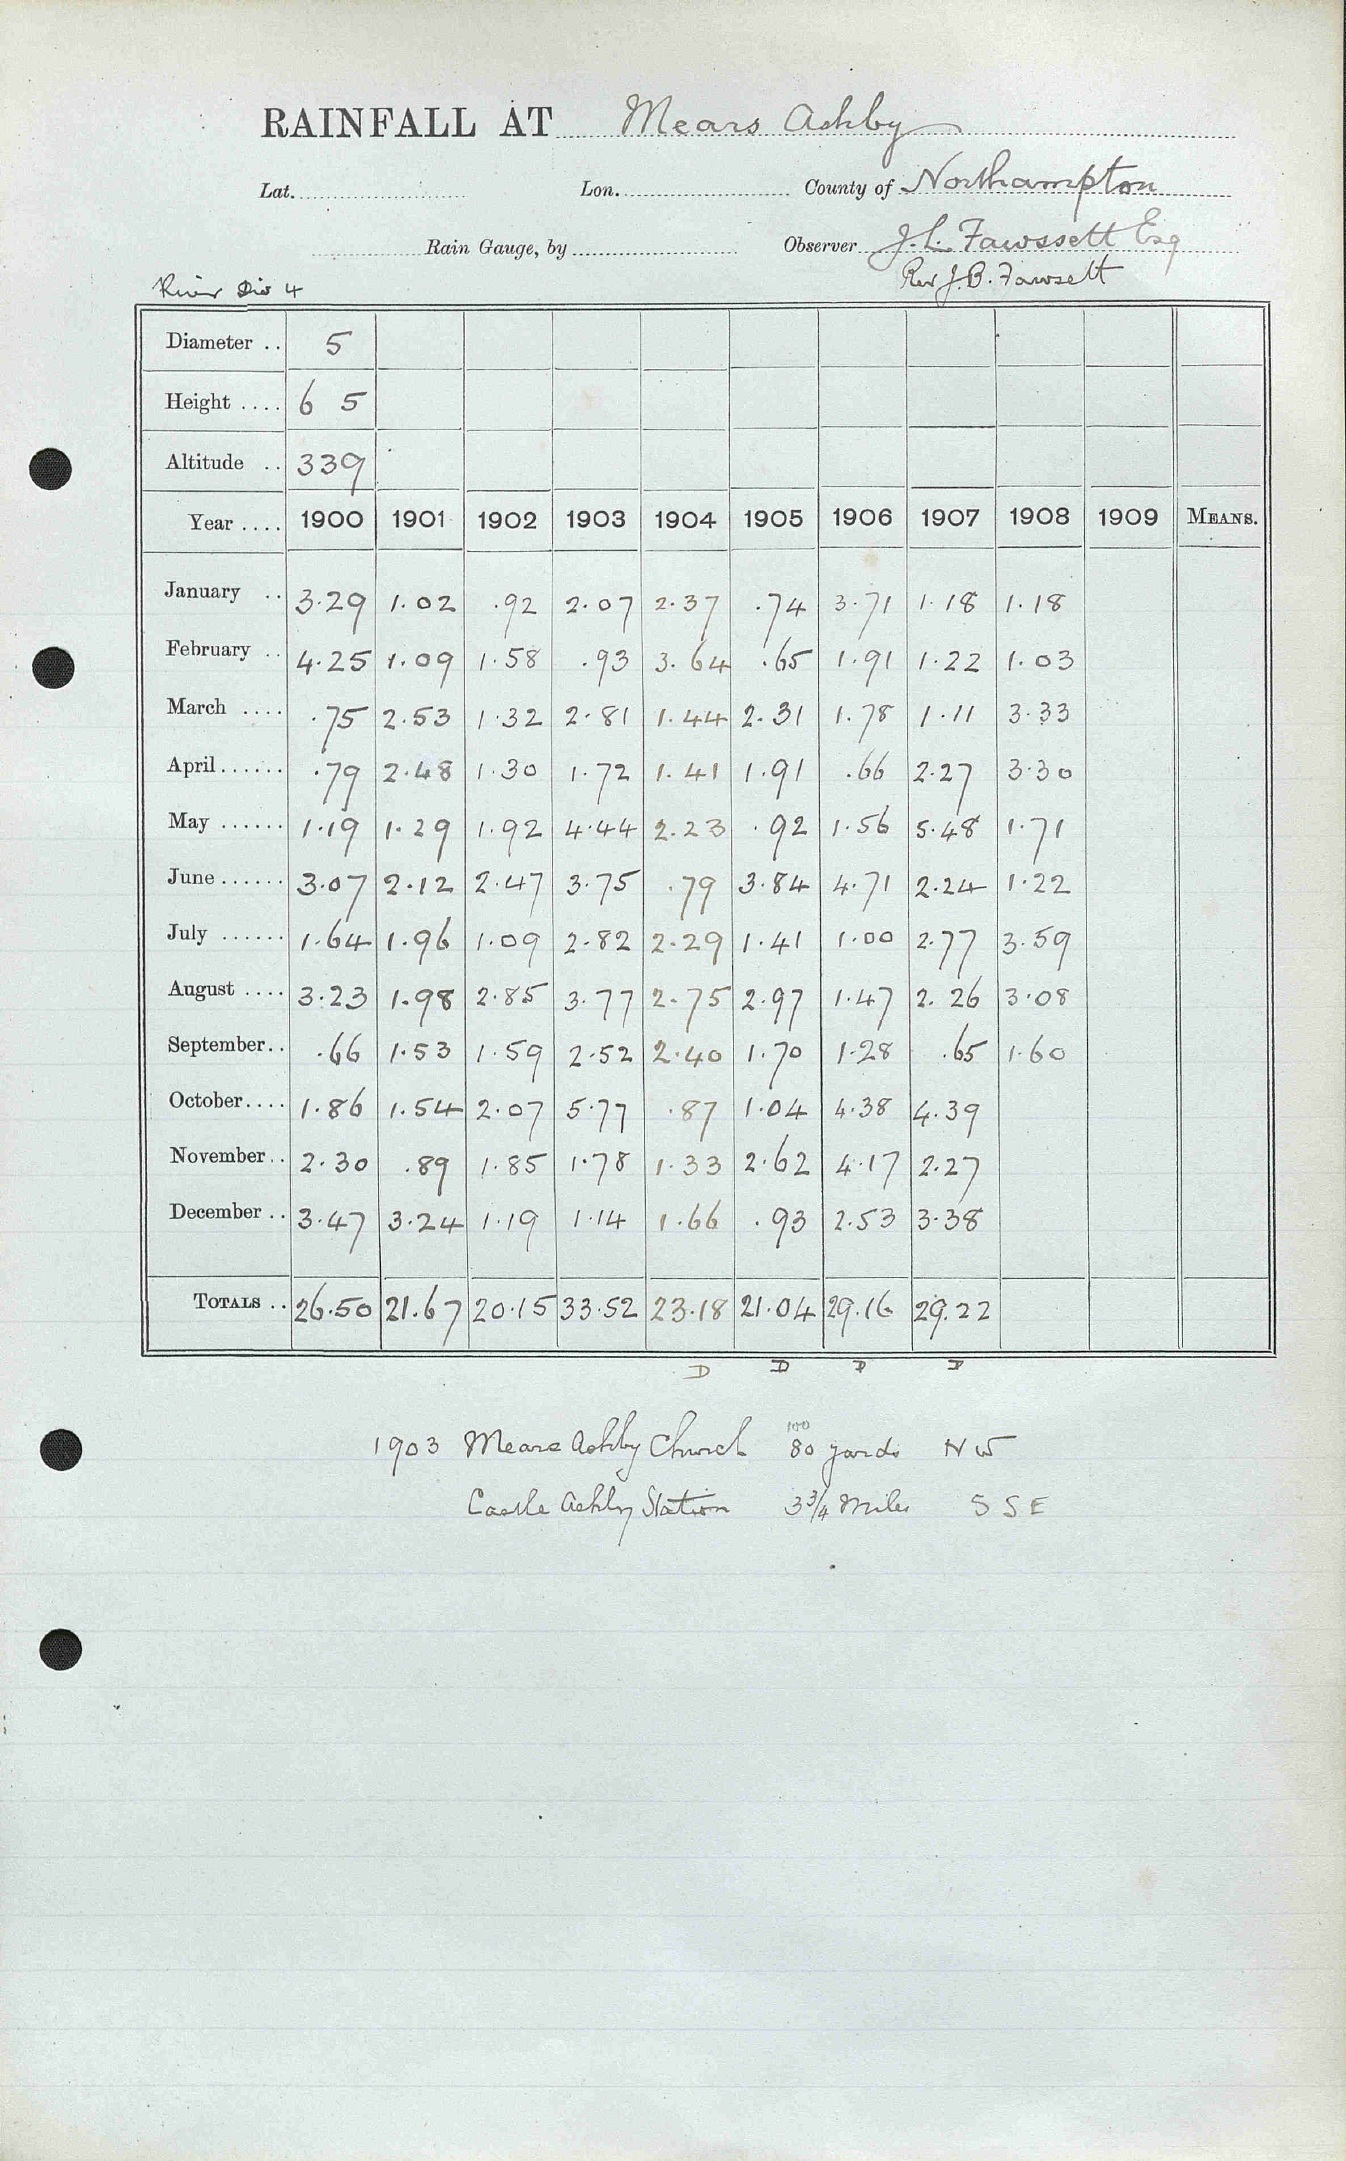 RAINFALL AT Mears Ashby
Lat. Lon. County of Northampton
Rain Gauge, by Observer J. L. Fawssett Esq
River Div 4 Rev J. B. Fawsett
Diameter .. 5
Height .... 6 5
Altitude .. 339
Year .... 1900 1901 1902 1903 1904 1905 1906 1907 1908 1909 MEANS.
January .. 3.29 1.02 .92 2.07 2.37 .74 3.71 1.18 1.18
February .. 4.25 1.09 1.58 .93 3.64 .65 1.91 1.22 1.03
March .... .75 2.53 1.32 2.81 1.44 2.31 1.78 1.11 3.33
April...... .79 2.48 1.30 1.72 1.41 1.91 .66 2.27 3.30
May ...... 1.19 1.29 1.92 4.44 2.23 .92 1.56 5.48 1.71
June...... 3.07 2.12 2.47 3.75 .79 3.84 4.71 2.24 1.22
July ...... 1.64 1.96 1.09 2.82 2.29 1.41 1.00 2.77 3.59
August .... 3.23 1.98 2.85 3.77 2.75 2.97 1.47 2.26 3.08
September.. .66 1.53 1.59 2.52 2.40 1.70 1.28 .65 1.60
October.... 1.86 1.54 2.07 5.77 .87 1.04 4.38 4.39
November.. 2.30 .89 1.85 1.78 1.33 2.62 4.17 2.27
December .. 3.47 3.24 1.19 1.14 1.66 .93 2.53 3.38
TOTALS .. 26.50 21.67 20.15 33.52 23.18 21.04 29.16 29.22
D D D D
100
1903 Mears Ashby Church 80 yards N W
Castle Ashby Station 3 3/4 Miles S S E